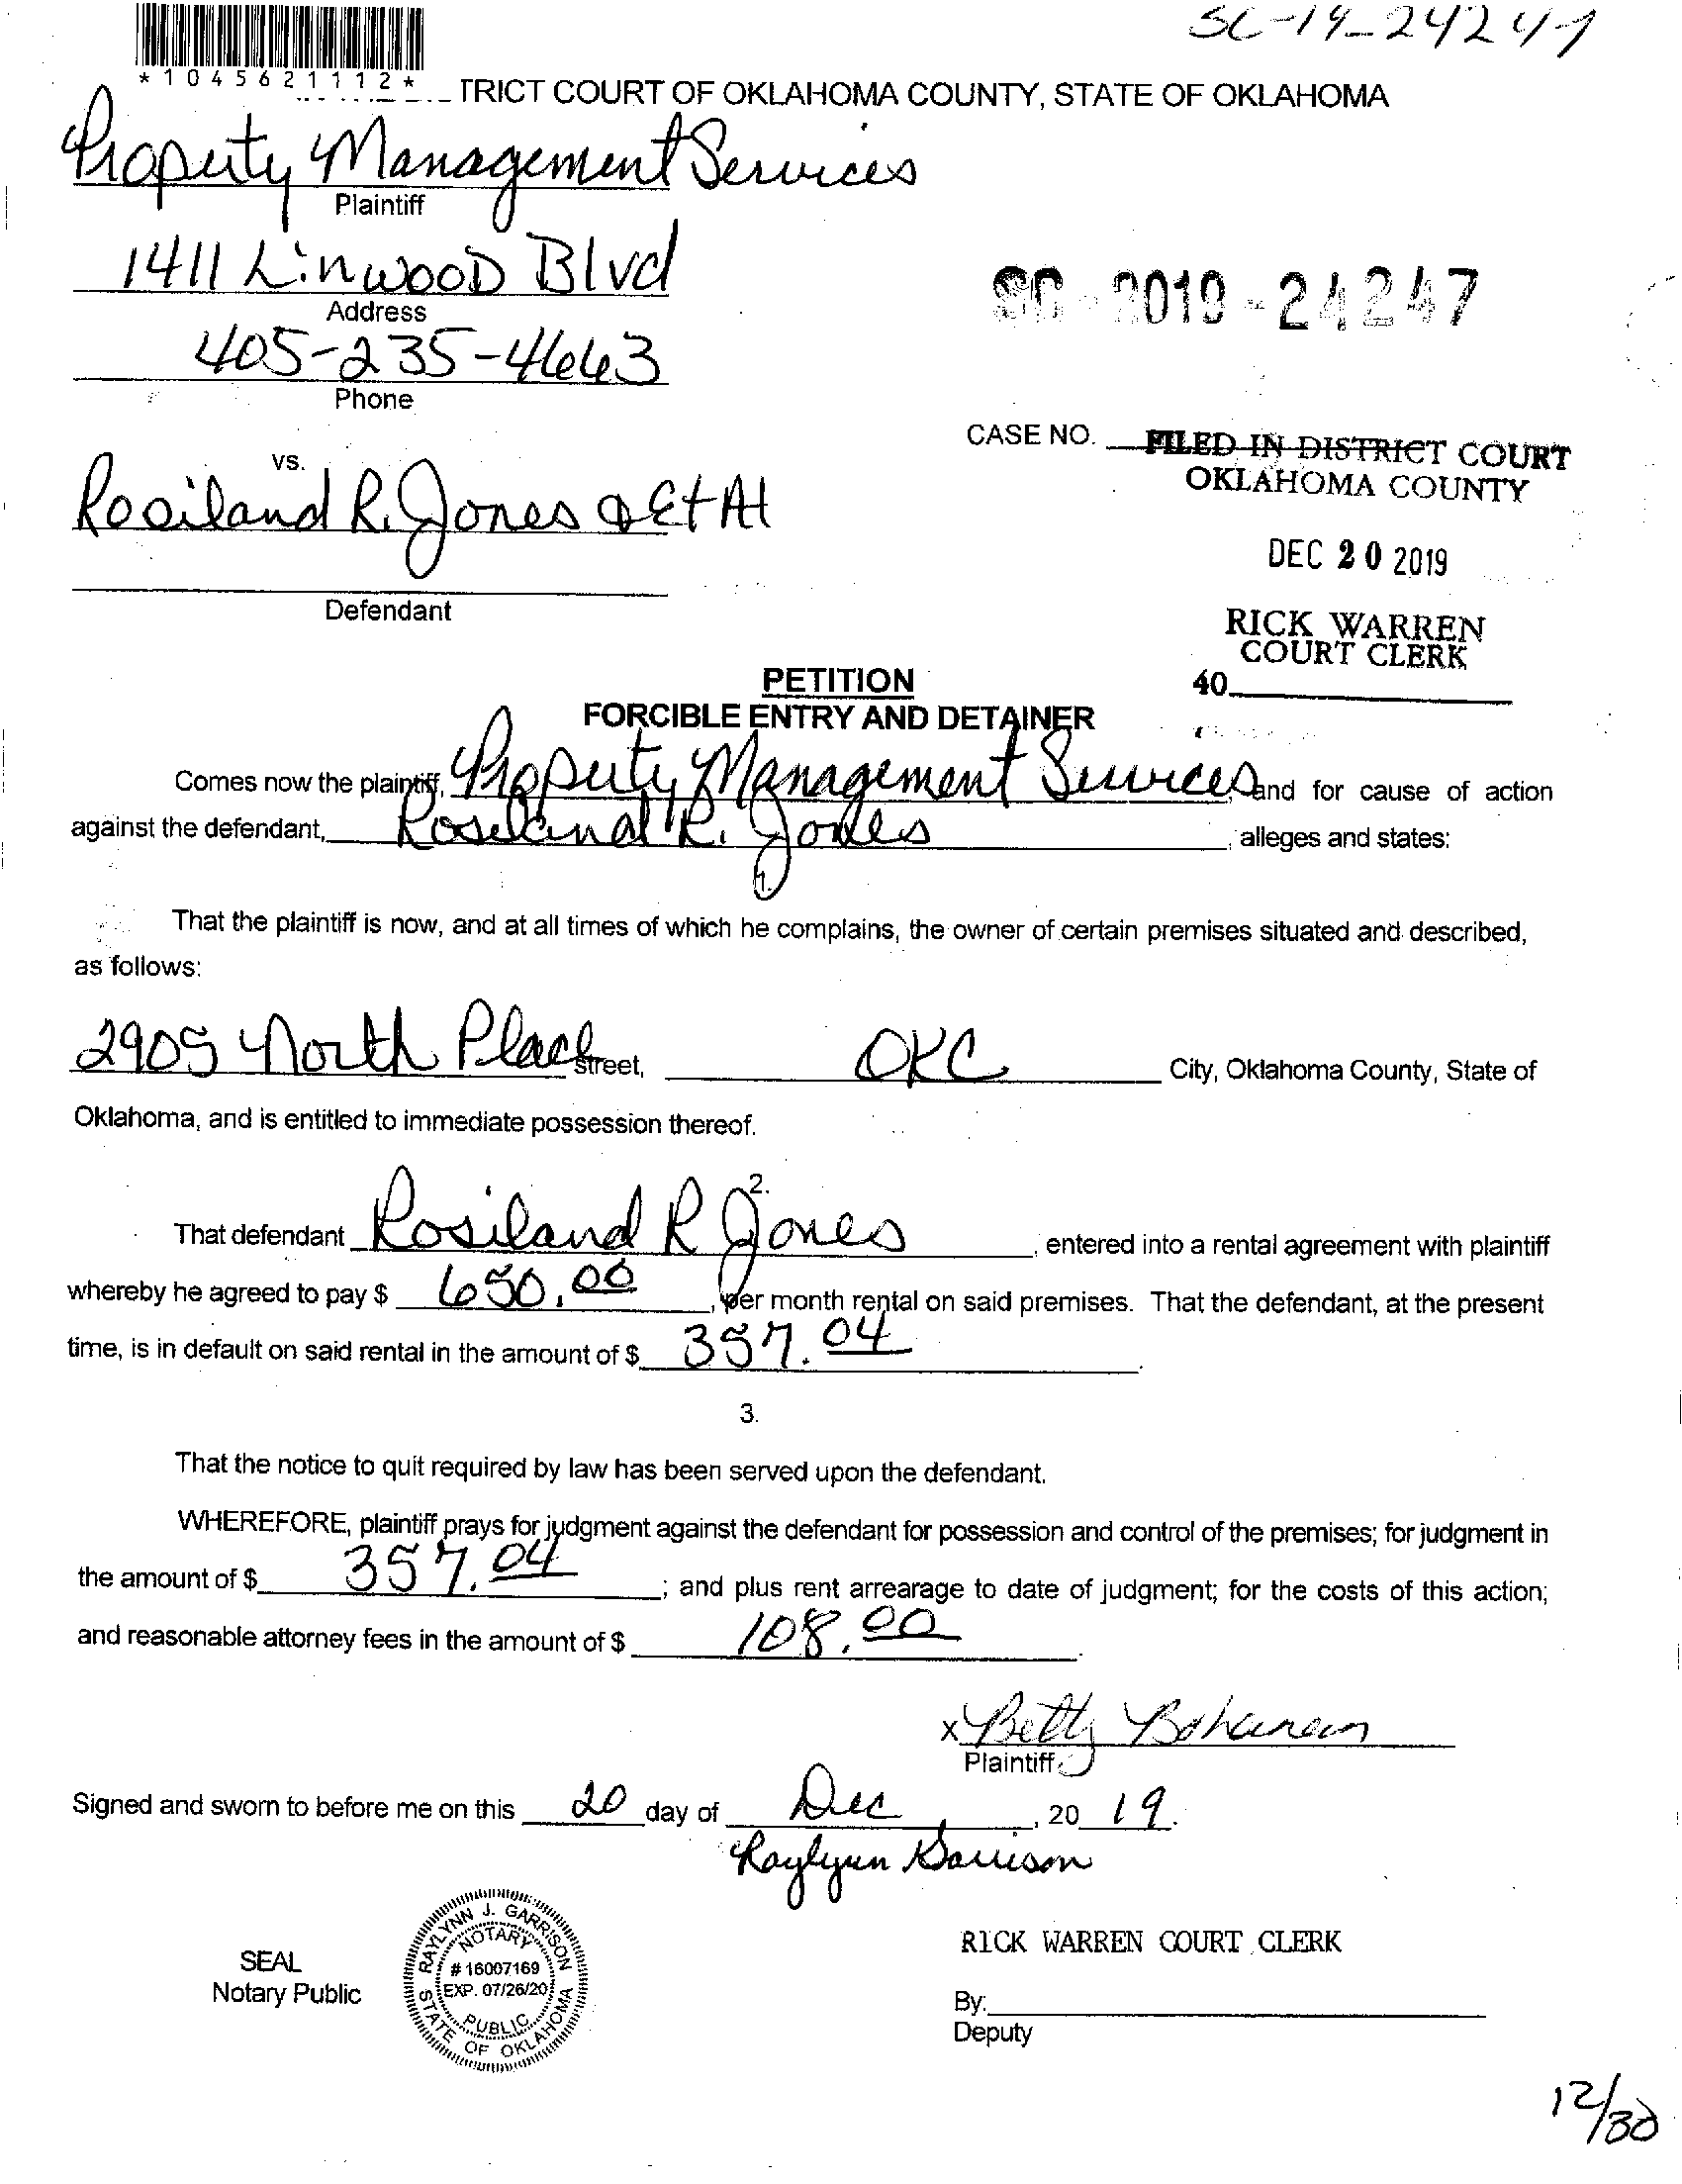 SC-19-24247
*1045621112*
TRICT COURT OF OKLAHOMA COUNTY, STATE OF OKLAHOMA
Property Management Services
Plaintiff
1411 Linwood Blvd
Address
405-235-4663
Phone
SC-2019-24247
CASE NO.
FILED IN DISTRICT COURT
OKLAHOMA COUNTY
vs.
Rosiland R. Jones & Et Al
DEC 20 2019
Defendant
RICK WARREN
COURT CLERK
40
PETITION
FORCIBLE ENTRY AND DETAINER
Comes now the plaintiff, Property Management Services and for cause of action
against the defendant, Rosiland R. Jones, alleges and states:
1.
That the plaintiff is now, and at all times of which he complains, the owner of certain premises situated and described,
as follows:
2905 North Place Street, OKC City, Oklahoma County, State of
Oklahoma, and is entitled to immediate possession thereof.
2.
That defendant Rosiland R Jones, entered into a rental agreement with plaintiff
whereby he agreed to pay $ 650.00, per month rental on said premises. That the defendant, at the present
time, is in default on said rental in the amount of $ 357.04.
3.
That the notice to quit required by law has been served upon the defendant.
WHEREFORE, plaintiff prays for judgment against the defendant for possession and control of the premises; for judgment in
the amount of $ 357.04; and plus rent arrearage to date of judgment; for the costs of this action;
and reasonable attorney fees in the amount of $ 108.00.
x Betty Bohanan
Plaintiff
Signed and sworn to before me on this 20 day of Dec, 20 19.
Raylynn Garrison
RAYLYNN J. GARRISON
NOTARY
# 16007169
EXP. 07/26/20
PUBLIC
STATE OF OKLAHOMA
SEAL
Notary Public
RICK WARREN COURT CLERK
By:
Deputy
12/30